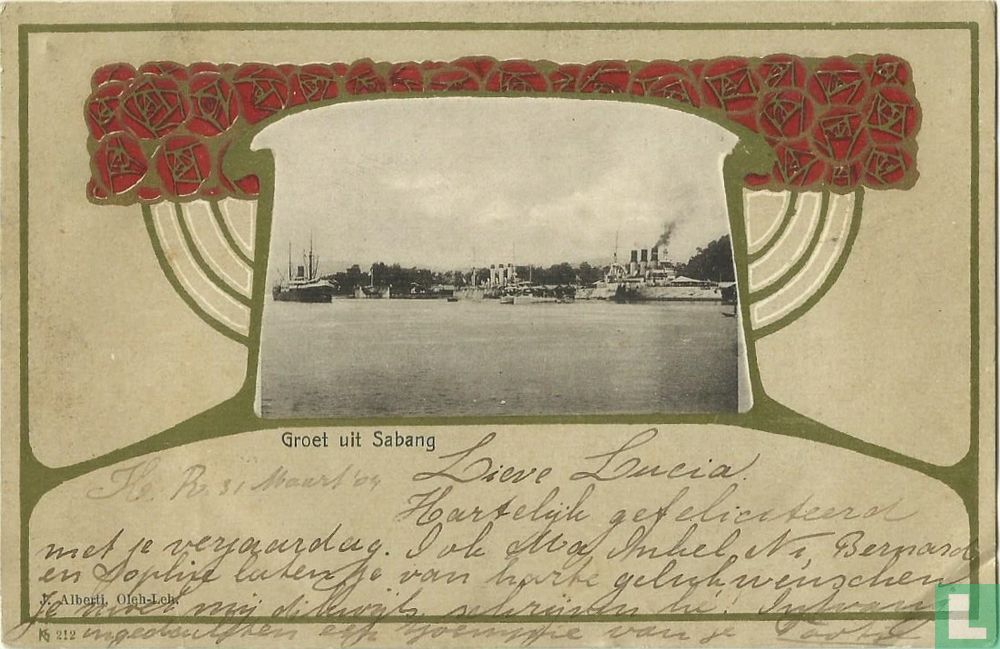 Groet uit Sabang
31 Maart '04
Lieve Lucia.
Hartelijk gefeliciteerd
met je verjaardag. Ook Ma, Ni, Bernard
en Sophie laten je van harte gelukwenschen
J. Alberti, Oleh-Leh.
Je moet mij dikwijls schrijven hè! Ontvang
212 een zoentje van je
L